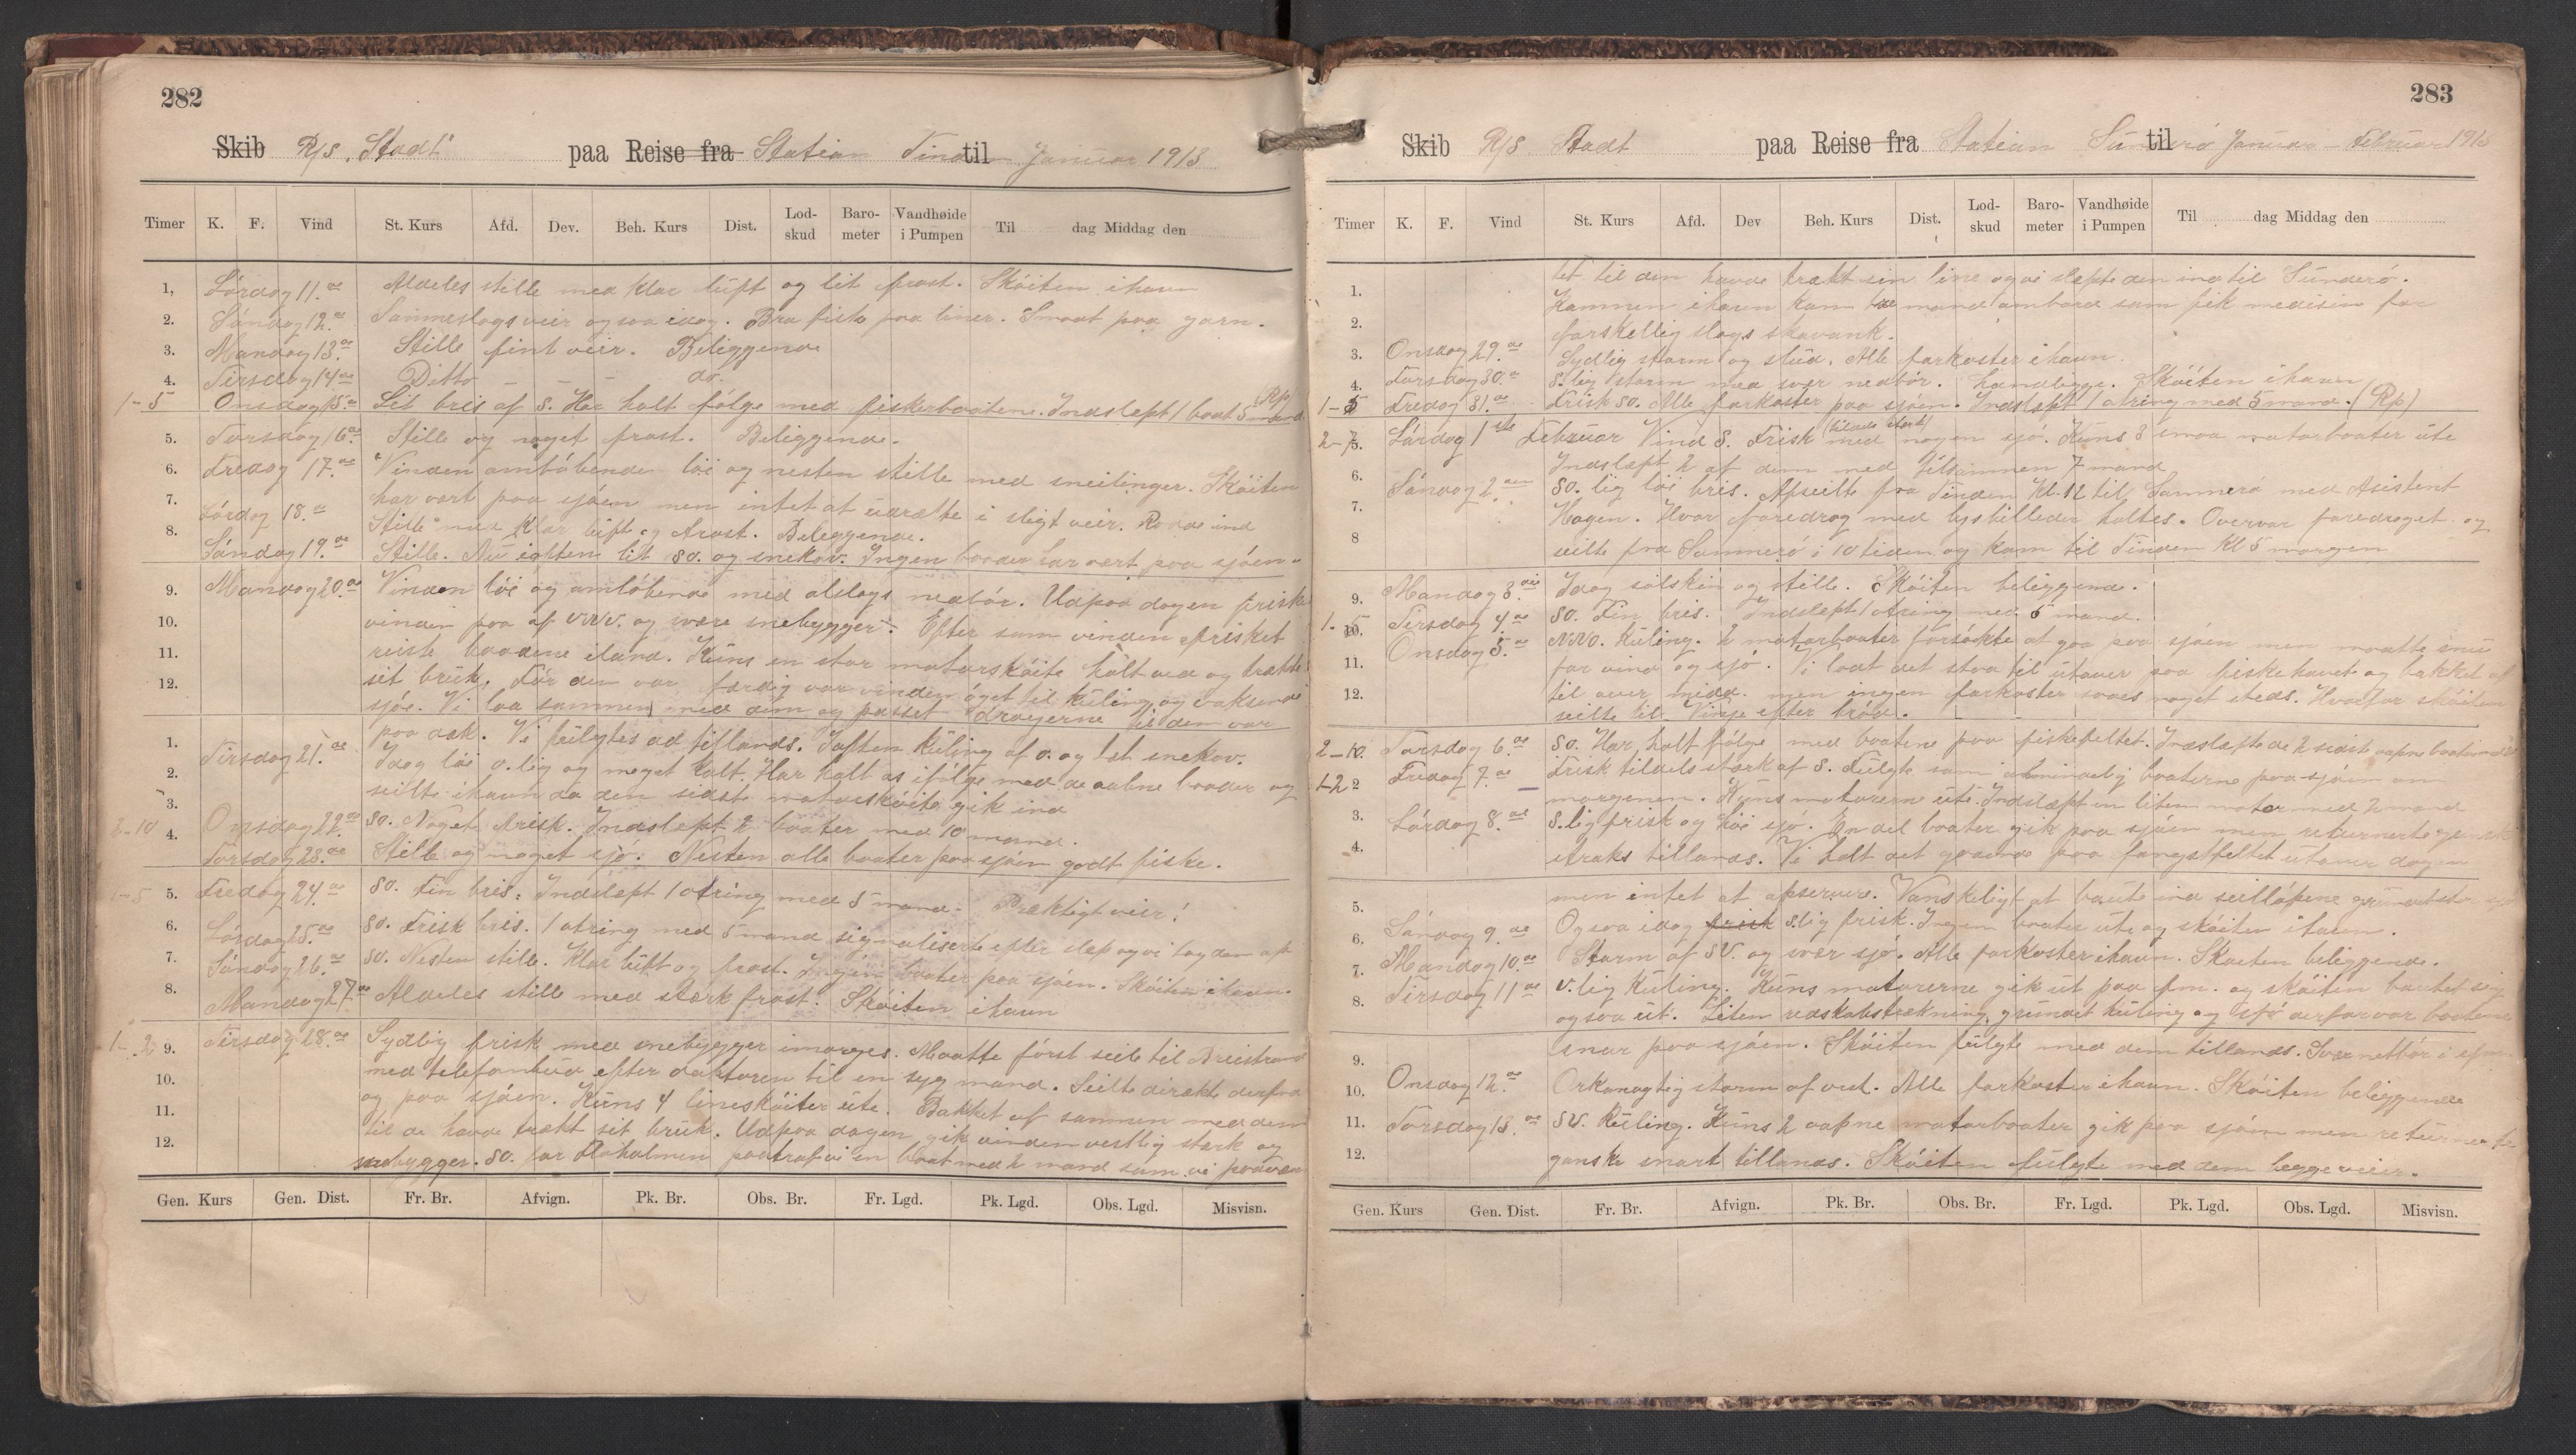 282
Skib R/S. "Stadt" paa Reise fra Station Tind til Januar 1913
Timer K. F. Vind St. Kurs Afd. Dev. Beh. Kurs Dist. Lod-skud Baro-meter Vandhøide i Pumpen Til dag Middag den
1, Lørdag 11.te Aldeles stille med klar luft og lit frost. Skøiten i havn
2. Søndag 12.te Sammeslags veir ogsaa idag. Bra fiske paa liner. Smaat paa garn.
3. Mandag 13.de Stille fint veir. Beliggende
4. Tirsdag 14de Ditto do.
1-5 Onsdag 15.de Lit bris af S. Har holt følge med fiskerbaatene. Indslept 1 baat 5 mand (Rp)
5. Torsdag 16.de Stille og noget frost. Beliggende.
6. Fredag 17.de Vinden omløbende løi og nesten stille med sneilinger. Skøiten
7. har vært paa sjøen men intet at udrætte i sligt veir. Roade ind
8. Lørdag 18.de Stille med klar luft og frost. Beleggende.
Søndag 19.de Stille. Nu iaften lit SO. og snekov. Ingen baader har vært paa sjøen.
9. Mandag 20.de Vinden løi og omløbende med alslags nedbør. Udpaa dagen frisket
10. vinden paa af VNV. og svære snebygger. Efter som vinden frisket
11. reiste baadene iland. Kuns en stor motorskøite holt ved og trækte
12. sit bruk. Før den var færdig var vinden øget til kuling og voksende
sjøe. Vi laa sammen med dem og passet dragerne til den var
1. paa dæk. Vi fulgtes ad tillands. Iaften kuling af O. og tet snekov.
2. Tirsdag 21.de Idag løi O.lig og meget kalt. Har holt os ifølge med de aabne baader og
3. seilte ihavn da den sidste motorskøite gik ind
2-10 4. Onsdag 22.de SO. Noget frisk. Indslept 2 baater med 10 mand.
Torsdag 23.de Stille og noget sjø. Nesten alle baater paa sjøen godt fiske.
1-5 5. Fredag 24.de SO. Fin bris. Indslept 1 otring med 5 mand. Præktigt veir!
6. Lørdag 25.de SO. Frisk bris. 1 otring med 5 mand signaliserte efter slep og vi tog den op
7. Søndag 26.de SO. Nesten stille. Klar luft og frost. Ingen baater paa sjøen. Skøiten ihavn.
8. Mandag 27.de Aldeles stille med stærk frost. Skøiten ihavn
1-2 9. Tirsdag 28.de Sydlig frisk med snebygger imorges. Maatte først seile til Breistrand
10. med telefonbud efter doktoren til en syg mand. Seilte direkte derfra
11. og paa sjøen. Kuns 4 lineskøiter ute. Bakket af sammen med dem
12. til de havde trækt sit bruk. Udpaa dagen gik vinden vestlig stærk og
snebygger. SO. for Floholmen paatraf vi en baat med 2 mand som vi paavær
Gen. Kurs Gen. Dist. Fr. Br. Afvign. Pk. Br. Obs. Br. Fr. Lgd. Pk. Lgd. Obs. Lgd. Misvisn.
283
Skib R/S Stadt paa Reise fra Station Sunderø til Januar - Februar 1913
Timer K. F. Vind St. Kurs Afd. Dev Beh. Kurs Dist. Lod-skud Baro-meter Vandhøide i Pumpen Til dag Middag den
1. tet til den havde trækt sin line og vi slæpte den ind til Sunderø.
2. Kommen ihavn kom mand ombord som fik medisin for
forskellig slags skavank.
3. Onsdag 29.de Sydlig storm og slud. Alle farkoster ihavn.
4. Torsdag 30.de S.lig storm med svær nedbør. Landligge. Skøiten ihavn
1-5 Fredag 31.de Frisk SO. Alle farkoster paa sjøen. Indslæpt 1 otring med 5 mand. (Rp)
2-7 5. Lørdag 1ste Februar Vind S. Frisk (tildels stærk) med nogen sjø. Kuns 3 smaa motorbaater ute
6. Indslæpt 2 af dem med tilsammen 7 mand
7. Søndag 2.den SO.lig løi bris. Afseilte fra Tinden Kl. 12 til Sommerø med Asistent
Hagen. Hvor foredrag med lysbilleder holtes. Overvar foredraget og
8 seilte fra Sommerø i 10 tiden og kom til Tinden Kl 5 morgen
9. Mandag 3.die Idag solskin og stille. Skøiten beliggende.
1-5 10. Tirsdag 4de SO. Fin bris. Indslæpt 1 otring med 5 mand.
11. Onsdag 5.te NNO. Kuling. 2 motorbaater forsøkte at gaa paa sjøen men maatte snu
for vind og sjø. Vi lodt det staa til utover paa fiskehavet og bakket af
12. til over midd. men ingen farkoster saaes noget steds. Hvorfor skøiten
seilte til Vinje efter brød.
2-10 Torsdag 6.te SO. Har holt følge med baatene paa fiskefeltet. Indslæpte de 2 sidste aapne baater
1-2 2 Fredag 7.de Frisk tildels stærk af S. Fulgte som almindelig baaterne paa sjøen om
morgenen. Kuns motorerne ute. Indslæpt en liten motor med 2 mand
3. Lørdag 8.de S.lig frisk og høi sjø. En del baater gik paa sjøen men returnerte
4. straks tillands. Vi holt det gaaende paa fangstfeltet utover dagen
5. men intet at opservere. Vanskeligt at baute ind seilløpene grundet stor sjø
6. Søndag 9.de Ogsaa idag frisk S.lig frisk. Ingen baater ute og skøiten ihavn.
7. Mandag 10.de Storm af SV. og svær sjø. Alle farkoster ihavn. Skøiten beliggende.
8. Tirsdag 11te V.lig Kuling. Kuns motorerne gik ut paa fm. og skøiten bautet sig
ogsaa ut. Liten redskabstrækning, grundet kuling og sjø derfor var baatene
9. snar paa sjøen. Skøiten fulgte med dem tillands. Svær nedbør i efm.
10. Onsdag 12.te Orkanagtig storm af vest. Alle farkoster ihavn. Skøiten beliggende
11. Torsdag 13.de SV. Kuling. Kuns 2 aapne motorbaater gik paa sjøen men returnerte
12. ganske snart tillands. Skøiten fulgte med dem begge veier.
Gen. Kurs Gen. Dist. Fr. Br. Afvign. Pk. Br. Obs. Br. Fr. Lgd. Pk. Lgd. Obs. Lgd. Misvisn.